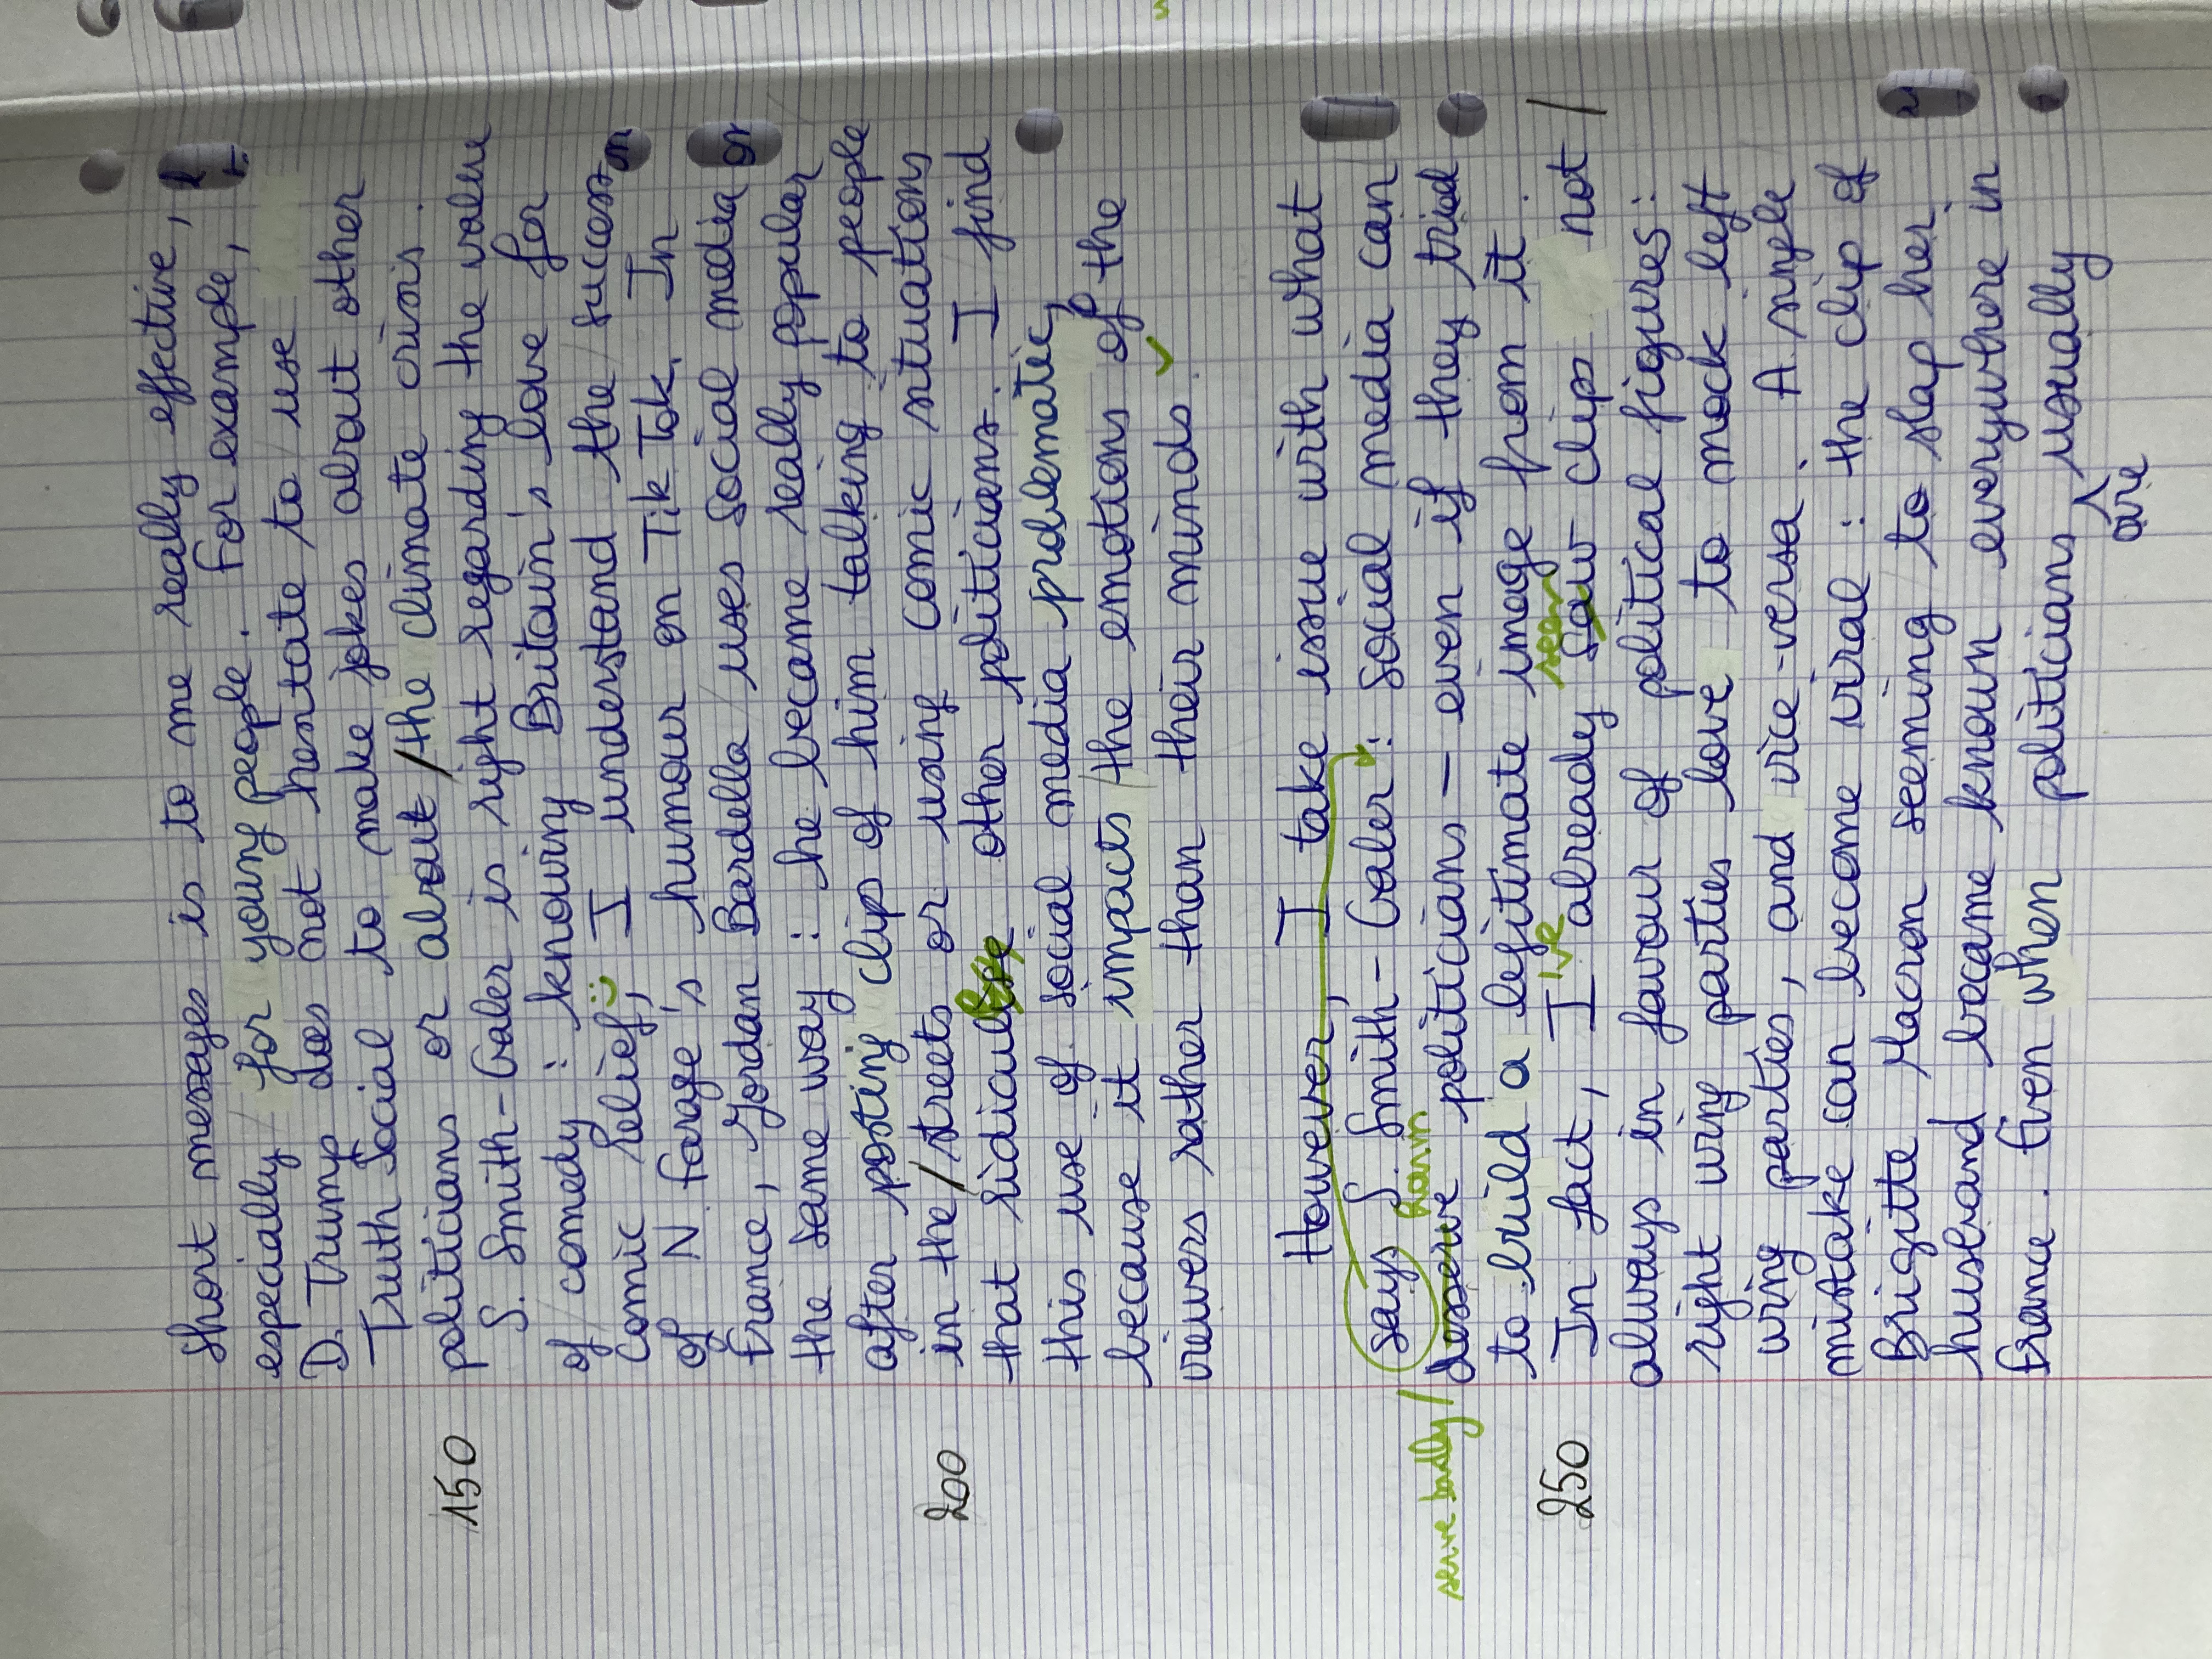 short messages is to me really effective,
especially for young people. For example,
D. Trump does not hesitate to use
Truth Social to make jokes about other
politicians or about / the climate crisis.
150
S. Smith-Galer is right regarding the value
of comedy : knowing Britain's love for
Comic Relief, I understand the success
of N. Farage's humour on TikTok. In
France, Jordan Bardella uses social media
the same way : he became really popular
after posting clip of him talking to people
in the / streets or using comic situations
200
that ridicule other politicians. I find
this use of social media problematic,
because it impacts the emotions of the
viewers rather than their minds.
However, I take issue with what
says S. Smith-Galer : social media can
serve badly / harm
deserve politicians - even if they tried
to build a legitimate image from it.
250
In fact, I 've already saw seen clips not /
always in favour of political figures :
right wing parties love to mock left
wing parties, and vice-versa. A single
mistake can become viral : the clip of
Brigitte Macron seeming to slap her
husband became known everywhere in
France. Even when politicians are usually